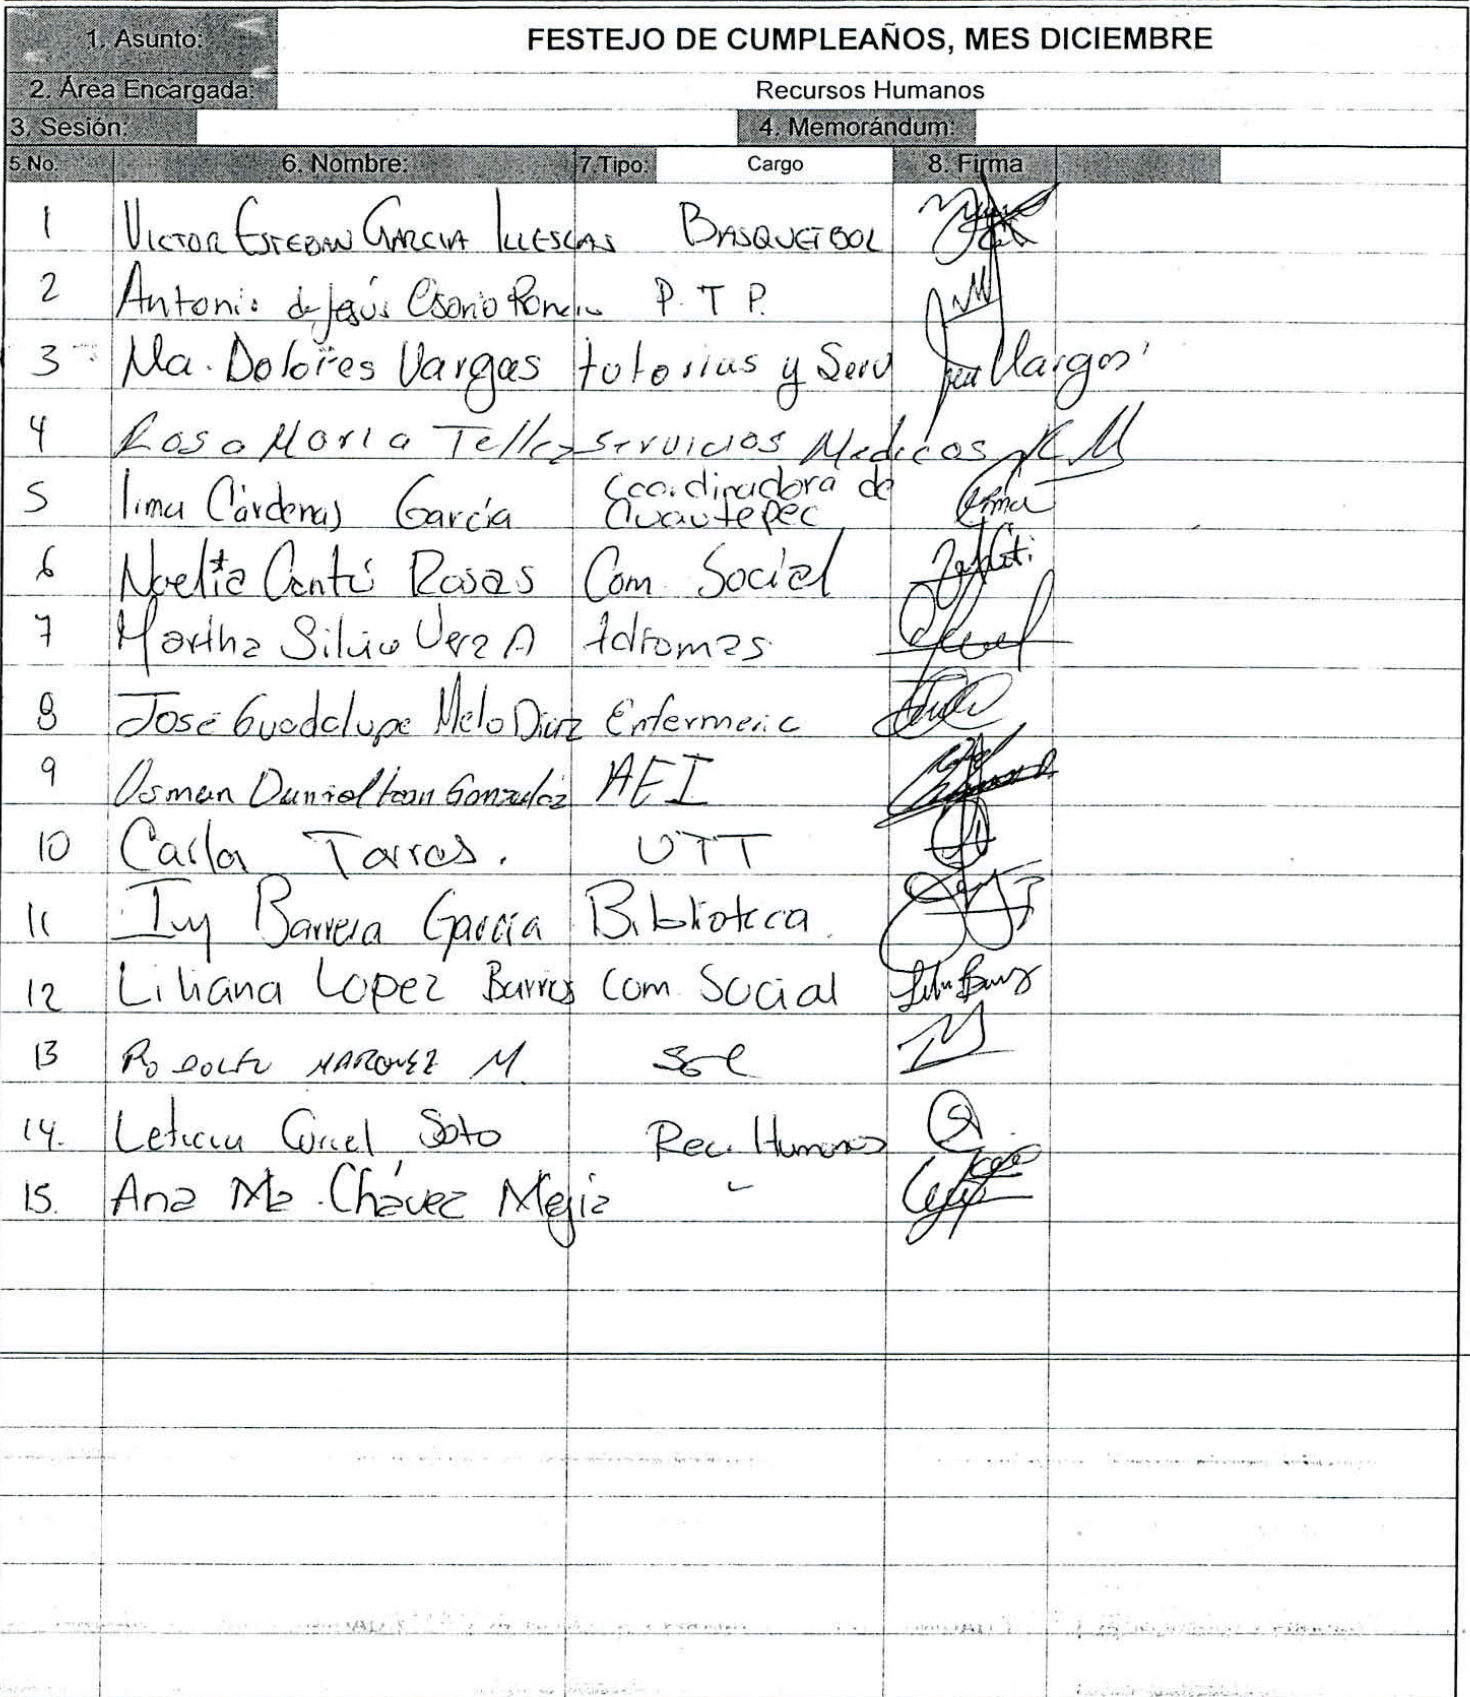 1. Asunto: FESTEJO DE CUMPLEAÑOS, MES DICIEMBRE
2. Área Encargada: Recursos Humanos
3. Sesión: 4. Memorándum:
5.No. 6. Nombre: 7.Tipo: Cargo 8. Firma
1 VICTOR ESTEBAN GARCIA ILLESCAS BASQUETBOL
2 Antonio de Jesús Osorio P.T P.
3 Ma. Dolores Vargas tutorias y Serv Vargas
4 Rosa Maria Tellez Servicios Medicos
5 Irma Cárdenas García Coordinadora de
Cuautepec Irma
6 Noelia Cantú Rosas Com. Social
7 Martha Silvia Vera A Idiomas
8 José Guadalupe Melo Diaz Enfermeria
9 Osman Daniel González AEI
10 Carla Torres. UTT
11 Ivy Barrera García Biblioteca.
12 Liliana Lopez Barrios Com. Social
13 RODOLFO MARQUEZ M.
14. Leticia Curiel Soto Rec. Humanos
15. Ana Ma. Chávez Mejia